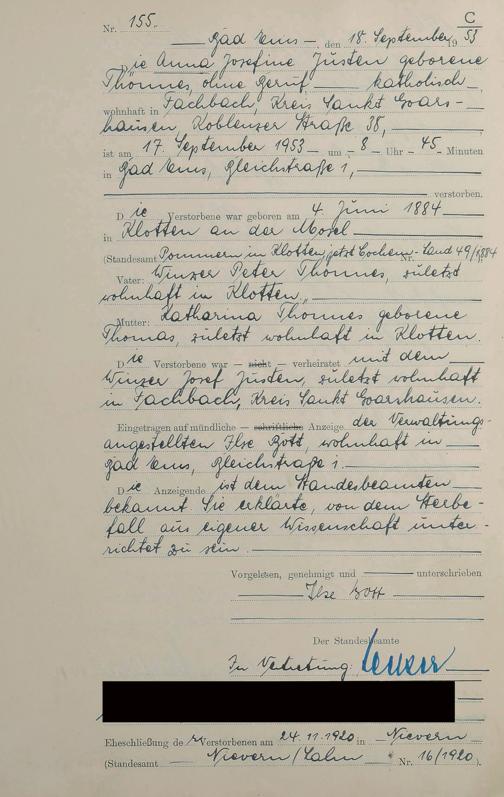 C
Nr. 155.
Bad Ems, den 18. September 1953
Die Anna Josefine Justen geborene
Thönnes, ohne Beruf katholisch
wohnhaft in Fachbach, Kreis Sankt Goars-
hausen, Koblenzer Straße 38,
ist am 17. September 1953 um 8 Uhr 45 Minuten
in Bad Ems, Bleichstraße 1,
verstorben.
Die Verstorbene war geboren am 4. Juni 1884
in Klotten an der Mosel
(Standesamt Pommern in Klotten jetzt Cochem-Land Nr. 49/1884
Vater: Winzer Peter Thönnes, zuletzt
wohnhaft in Klotten,
Mutter: Katharina Thönnes geborene
Thomas, zuletzt wohnhaft in Klotten.
Die Verstorbene war – nicht – verheiratet mit dem
Winzer Josef Justen, zuletzt wohnhaft
in Fachbach, Kreis Sankt Goarshausen.
Eingetragen auf mündliche – schriftliche Anzeige der Verwaltungs-
angestellten Ilse Bott, wohnhaft in
Bad Ems, Bleichstraße 1.
Die Anzeigende ist dem Standesbeamten
bekannt. Sie erklärte, von dem Sterbe-
fall aus eigener Wissenschaft unter-
richtet zu sein.
Vorgelesen, genehmigt und unterschrieben
Ilse Bott
Der Standesbeamte
In Vertretung:
Eheschließung der Verstorbenen am 24.11.1920 in Nievern
(Standesamt Nievern/Lahn Nr. 16/1920).